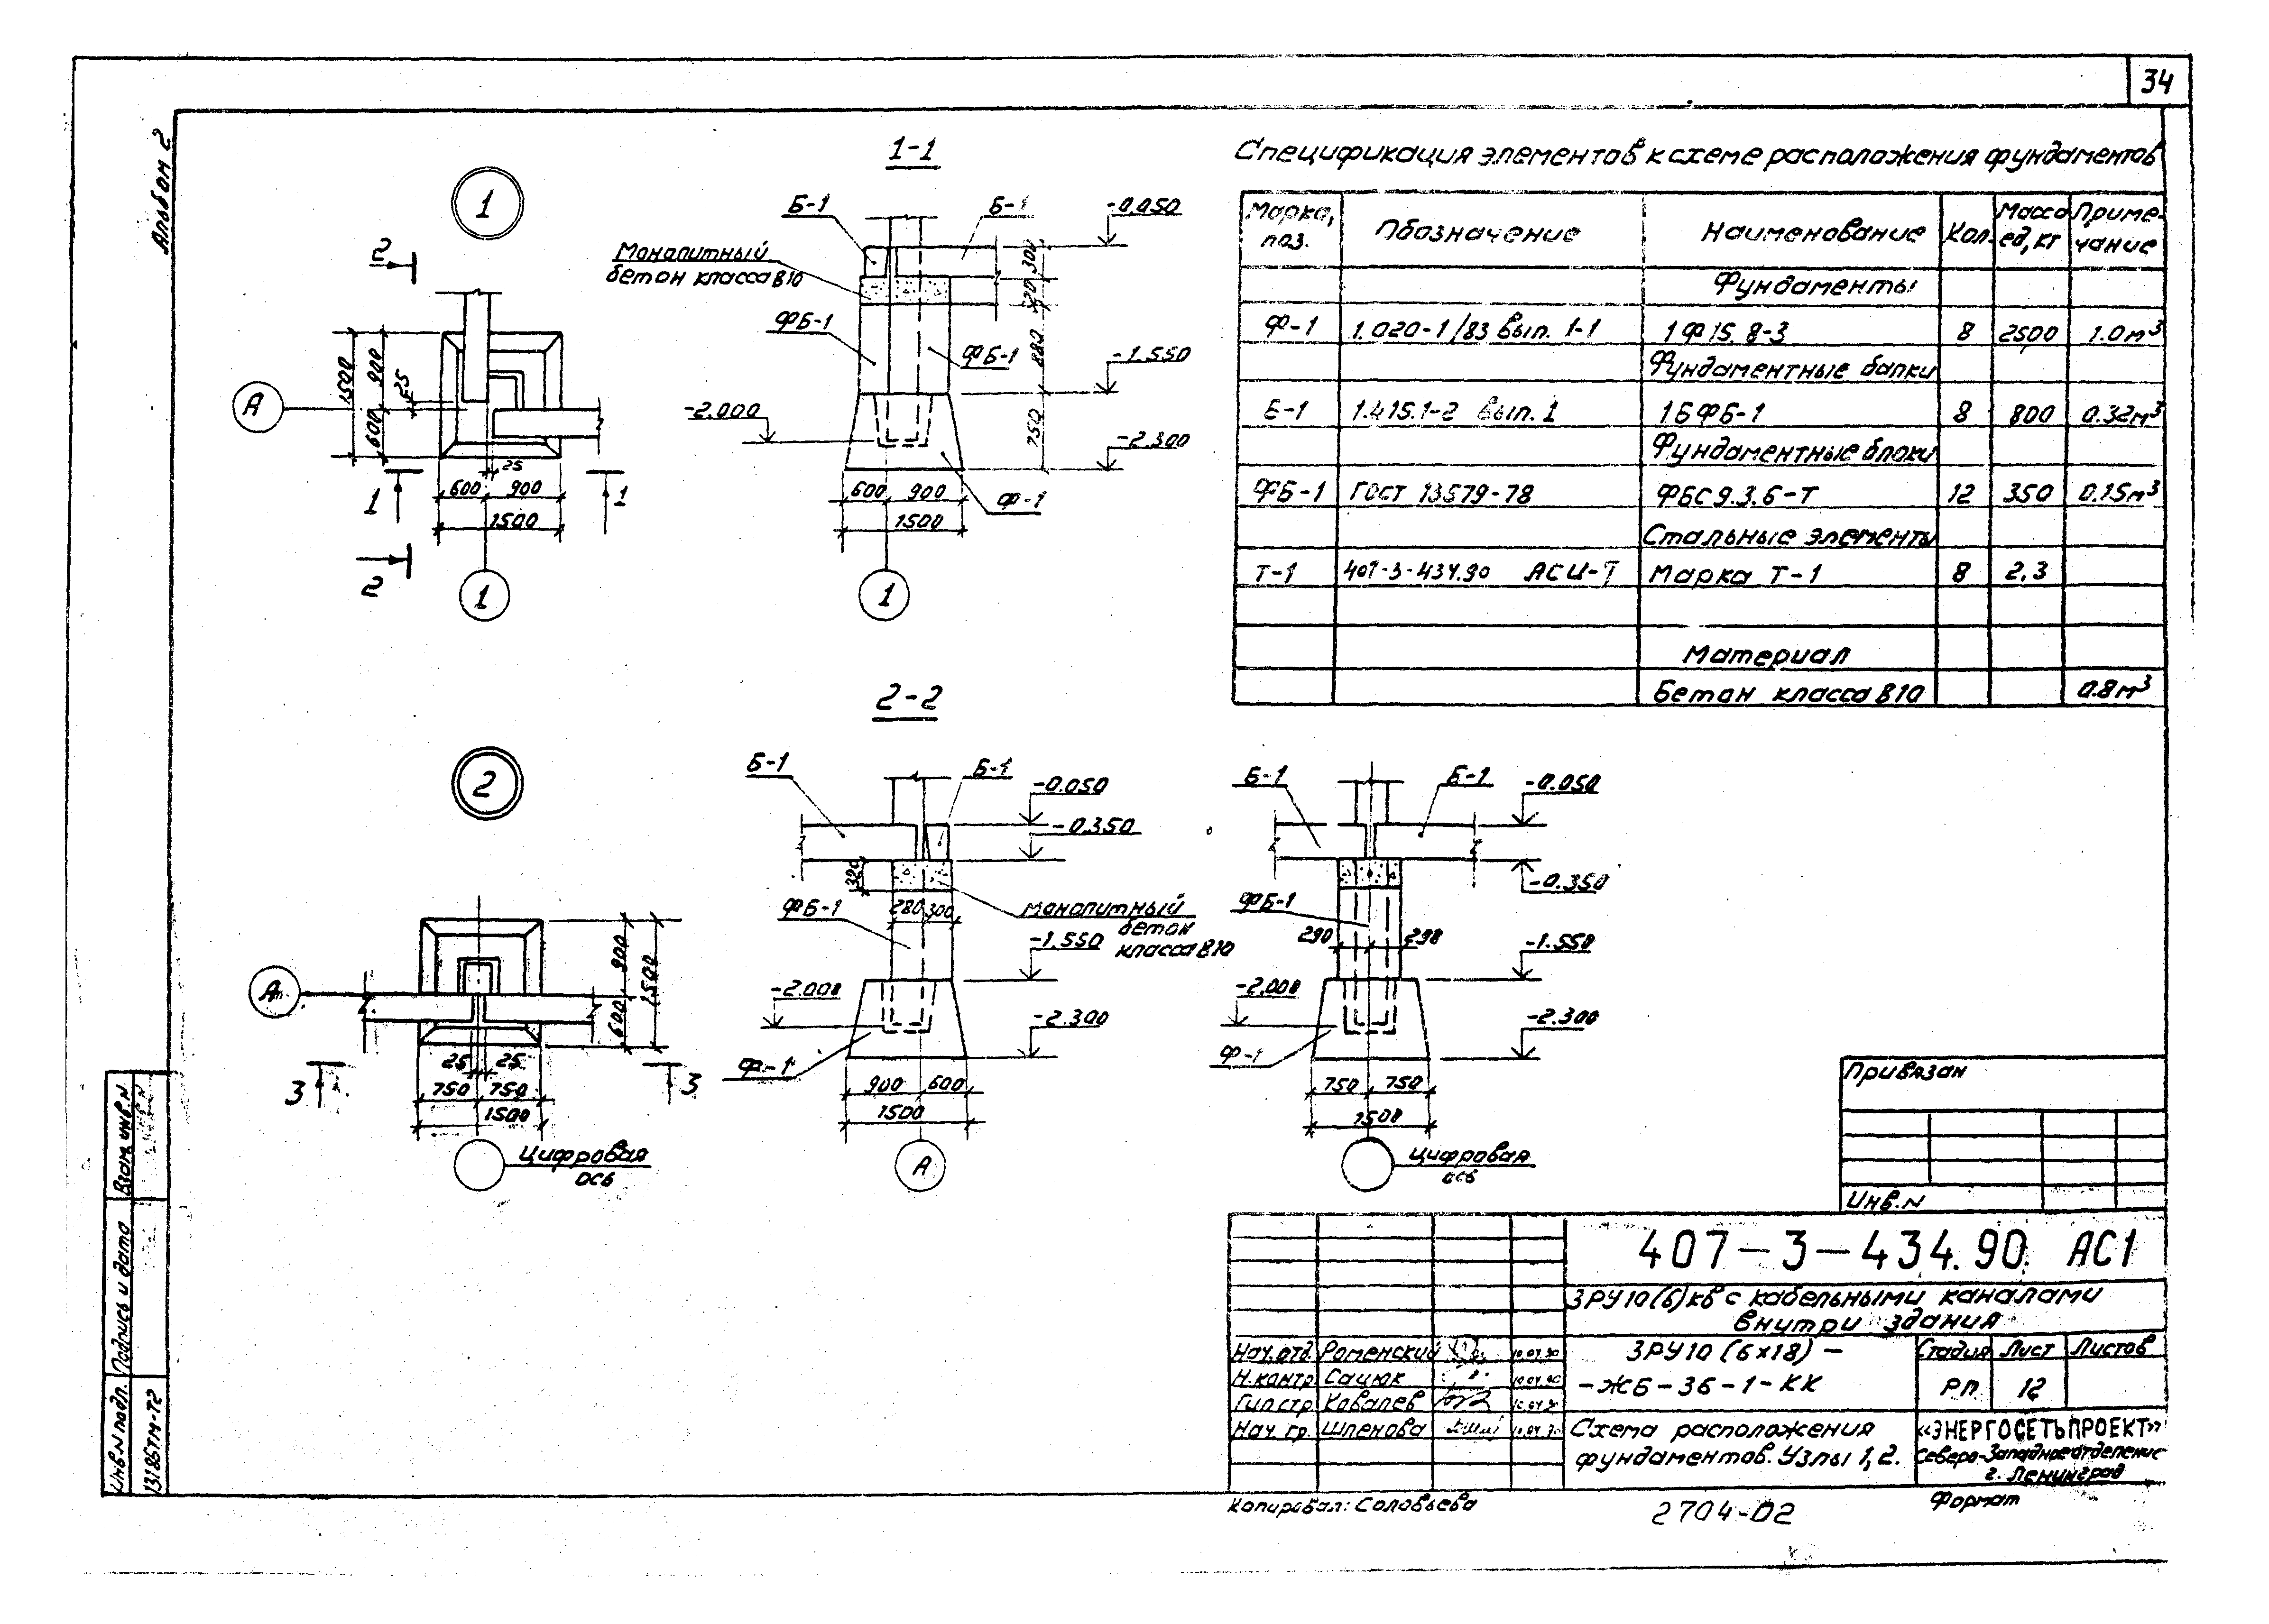 34
Альбом 2
1
2
А
1500
900
600
25
25
600 900
1500
1
1
2
1
1-1
Б-1
Б-1
-0.050
Монолитный
бетон класса В10
300
320
ФБ-1
ФБ-1
880
-1.550
-2.000
750
-2.300
600 900
1500
Ф-1
1
Спецификация элементов к схеме расположения фундаментов
Марка, поз. | Обозначение | Наименование | Кол. | Масса ед, кг | Примечание
Фундаменты
Ф-1 1.020-1/83 вып. 1-1 1Ф15.8-3 8 2500 1.0м³
Фундаментные балки
Б-1 1.415.1-2 вып. 1 1БФ6-1 8 800 0.32м³
Фундаментные блоки
ФБ-1 ГОСТ 13579-78 ФБС9.3.6-Т 12 350 0.15м³
Стальные элементы
Т-1 407-3-434.90 АСИ-Т Марка Т-1 8 2,3
Материал
Бетон класса В10 0.8м³
2
А
900
600
1500
25 25
750 750
1500
3
3
Цифровая
ось
2-2
Б-1
Б-1
-0.050
-0.350
320
ФБ-1
280 300
монолитный
бетон
класса В10
-1.550
-2.000
-2.300
Ф-1
900 600
1500
А
Б-1
Б-1
-0.050
-0.350
ФБ-1
290 290
-1.550
-2.000
-2.300
Ф-1
750 750
1500
Цифровая
ось
Привязан
Инв.N
407-3-434.90 АС1
ЗРУ10(6)кв с кабельными каналами
внутри здания
Нач.отд. Роменский 10.04.90
Н.контр Сацюк 10.04.90
Гип стр Ковалев
Нач. гр. Шленова
ЗРУ10 (6х18) -
-ЖБ-36-1-КК
Стадия Лист Листов
РП 12
Схема расположения
фундаментов. Узлы 1, 2.
«ЭНЕРГОСЕТЬПРОЕКТ»
Северо-Западное отделение
г. Ленинград
Взам. инв. N
Подпись и дата
Инв. N подл.
13186ТМ-Т2
Копировал: Соловьева
2704-02
Формат